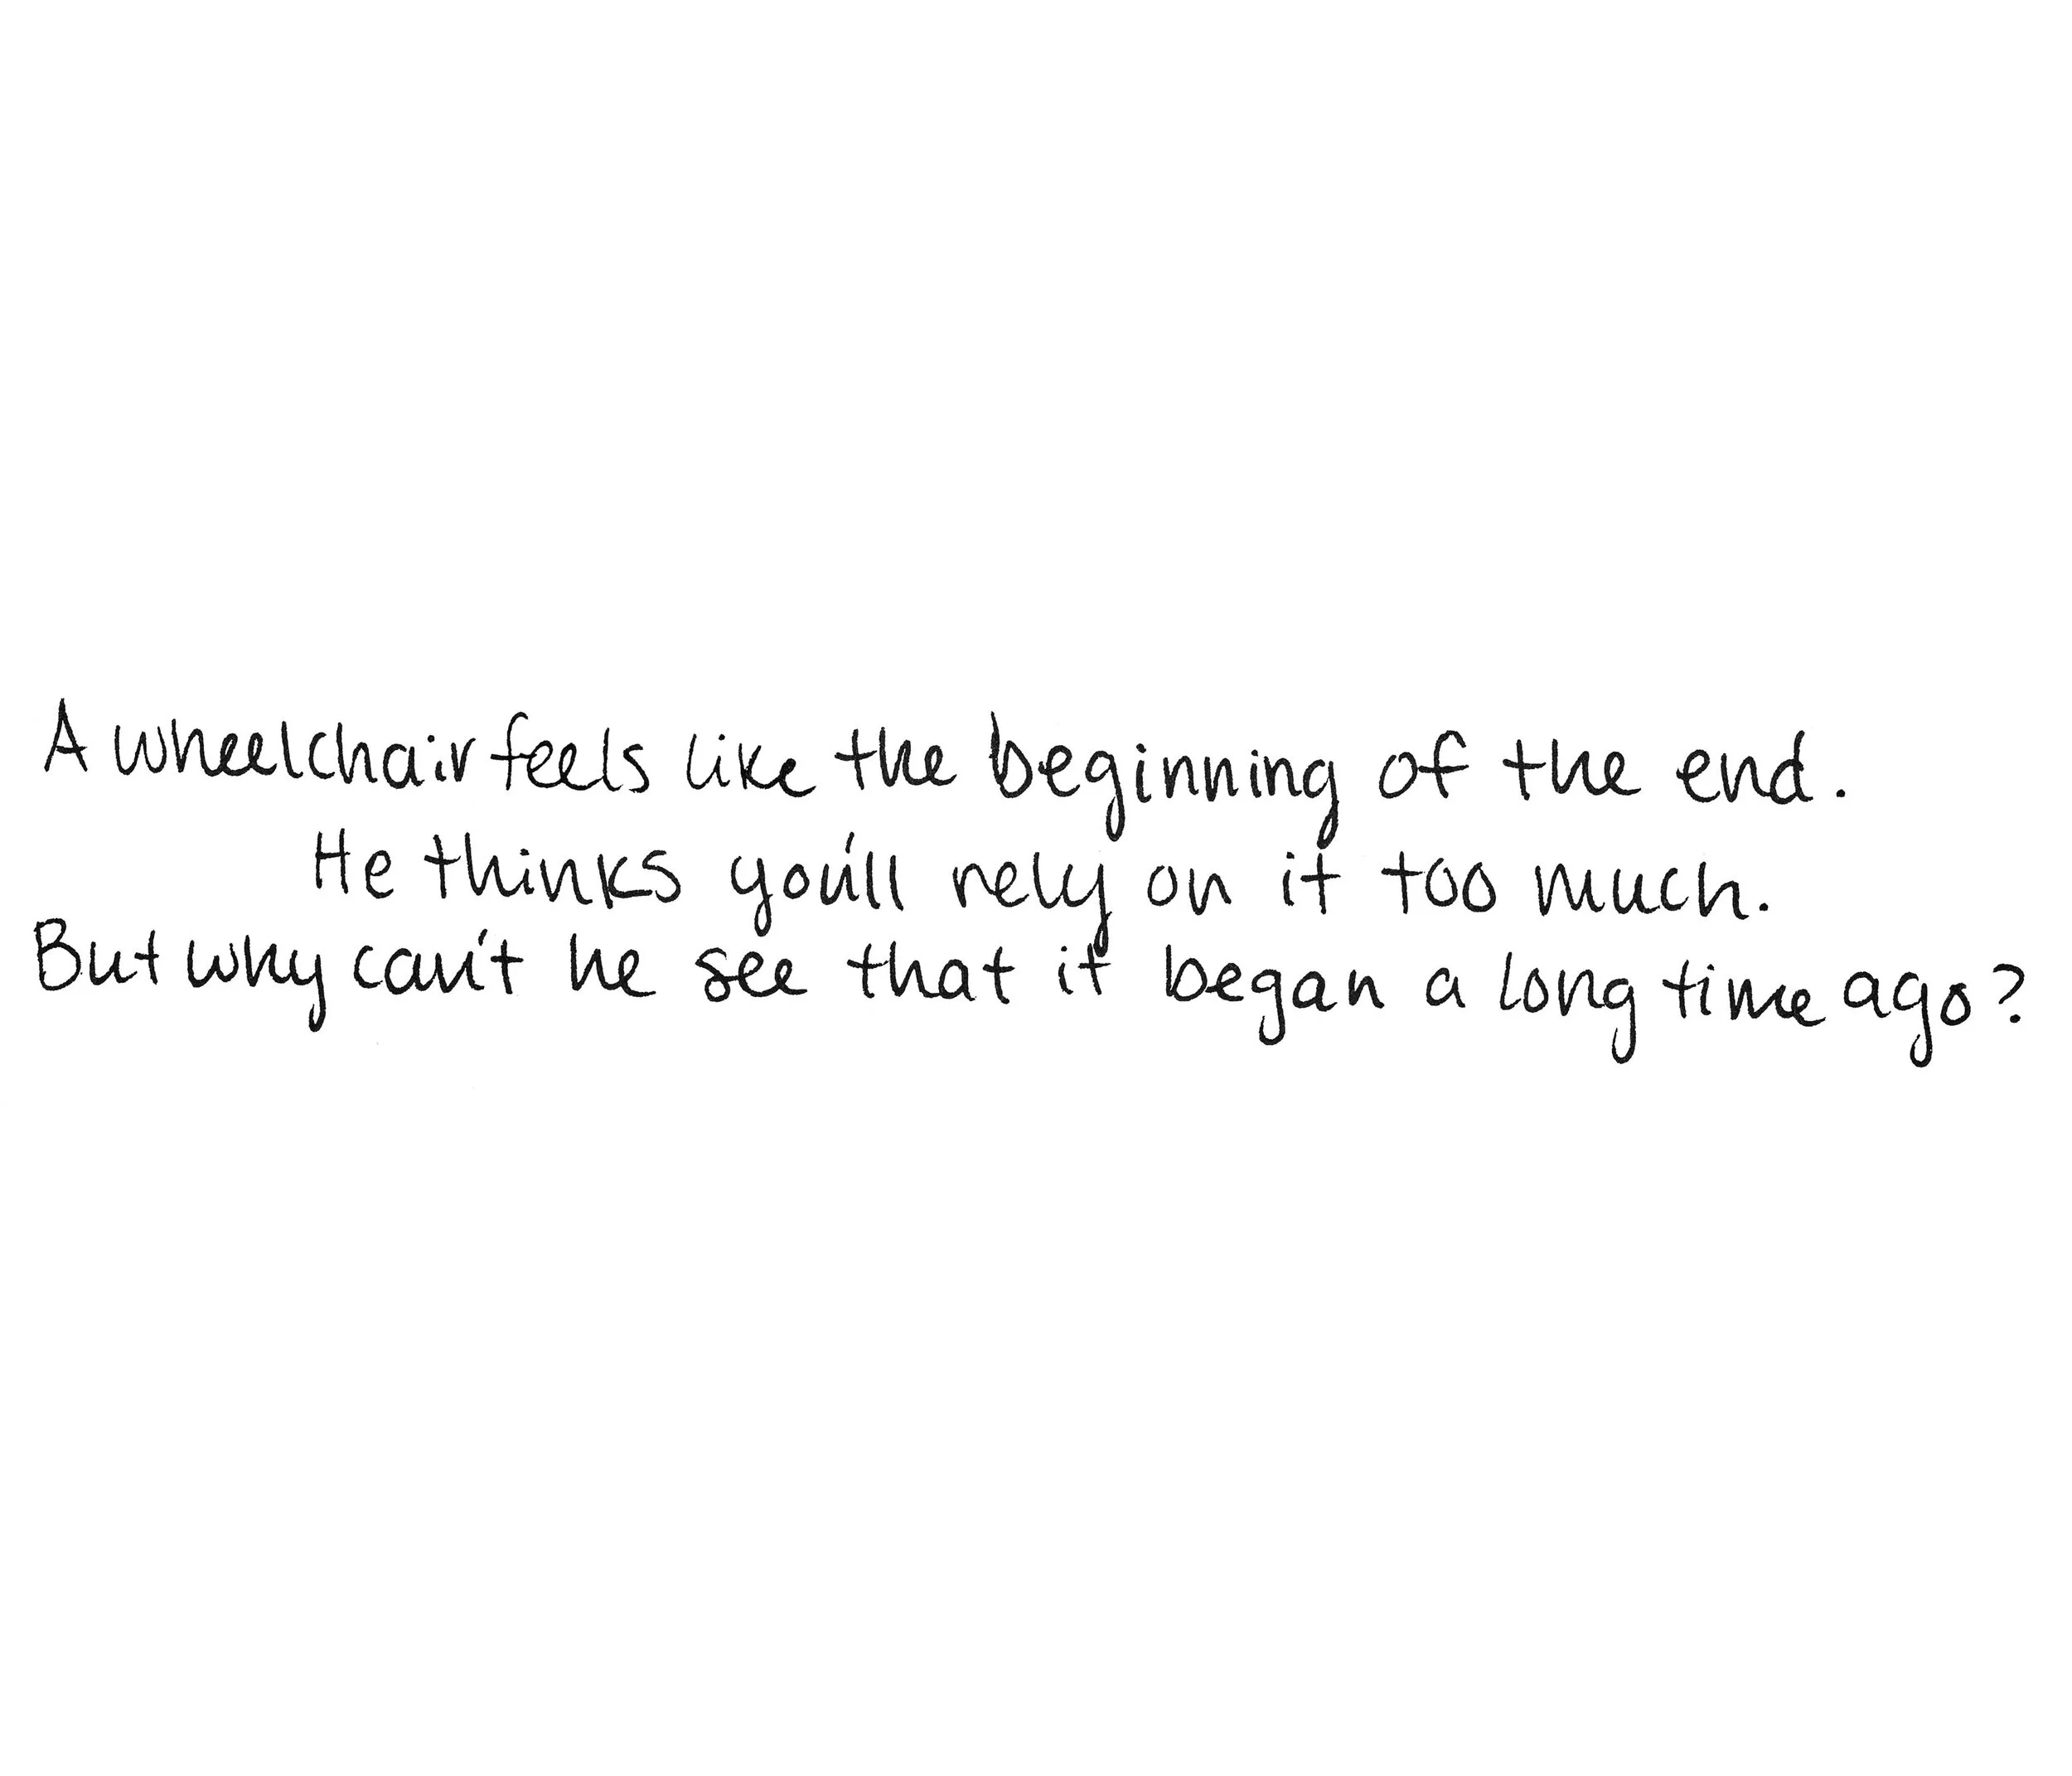 A wheelchair feels like the beginning of the end.
He thinks you'll rely on it too much.
But why can't he see that it began a long time ago?